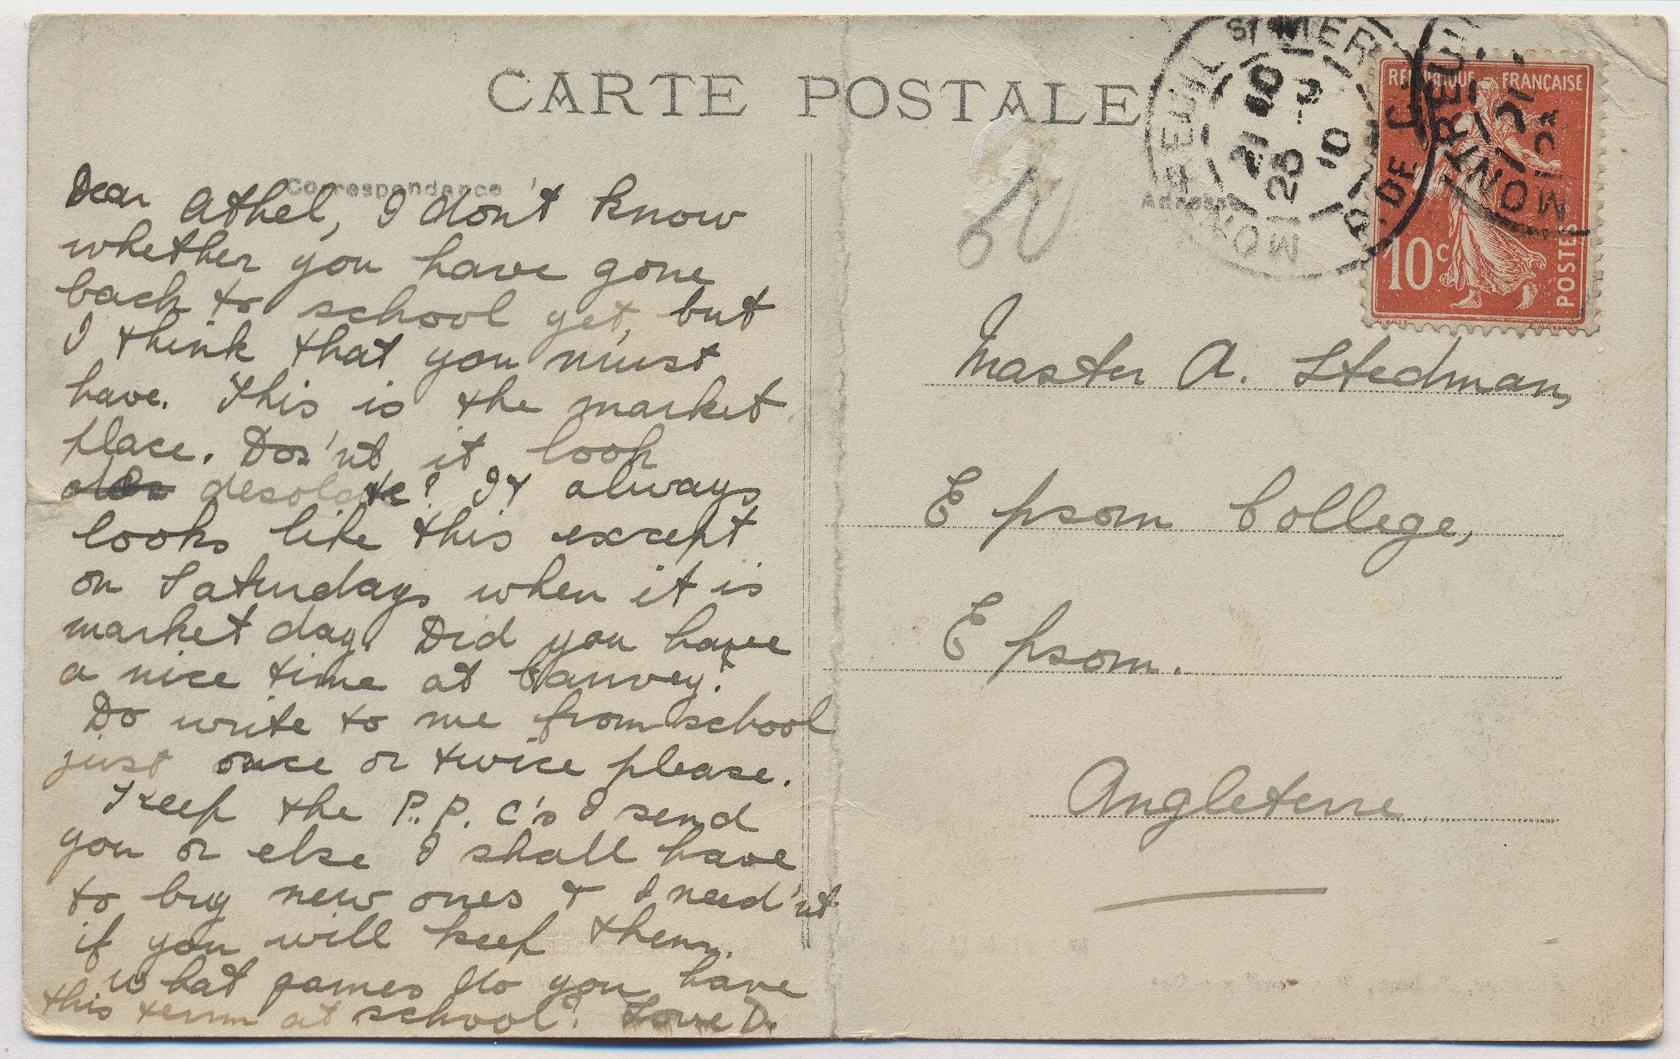 CARTE POSTALE
Correspondance
Dear Athel, I don't know
whether you have gone
back to school yet, but
I think that you must
have. This is the market
place. Dos'nt it look
desolate? It always
looks like this except
on Saturdays when it is
market day. Did you have
a nice time at Canvey?
Do write to me from school
just once or twice please.
Keep the P.P.C's I send
you or else I shall have
to buy new ones & I need'nt
if you will keep them.
What games do you have
this term at school? Love D.
Adresse
MONTREUIL S' MER
21 10
25 - 9
10
P. DE C.
RÉPUBLIQUE FRANÇAISE
10c
POSTES
Master A. Stedman,
Epsom College,
Epsom.
Angleterre